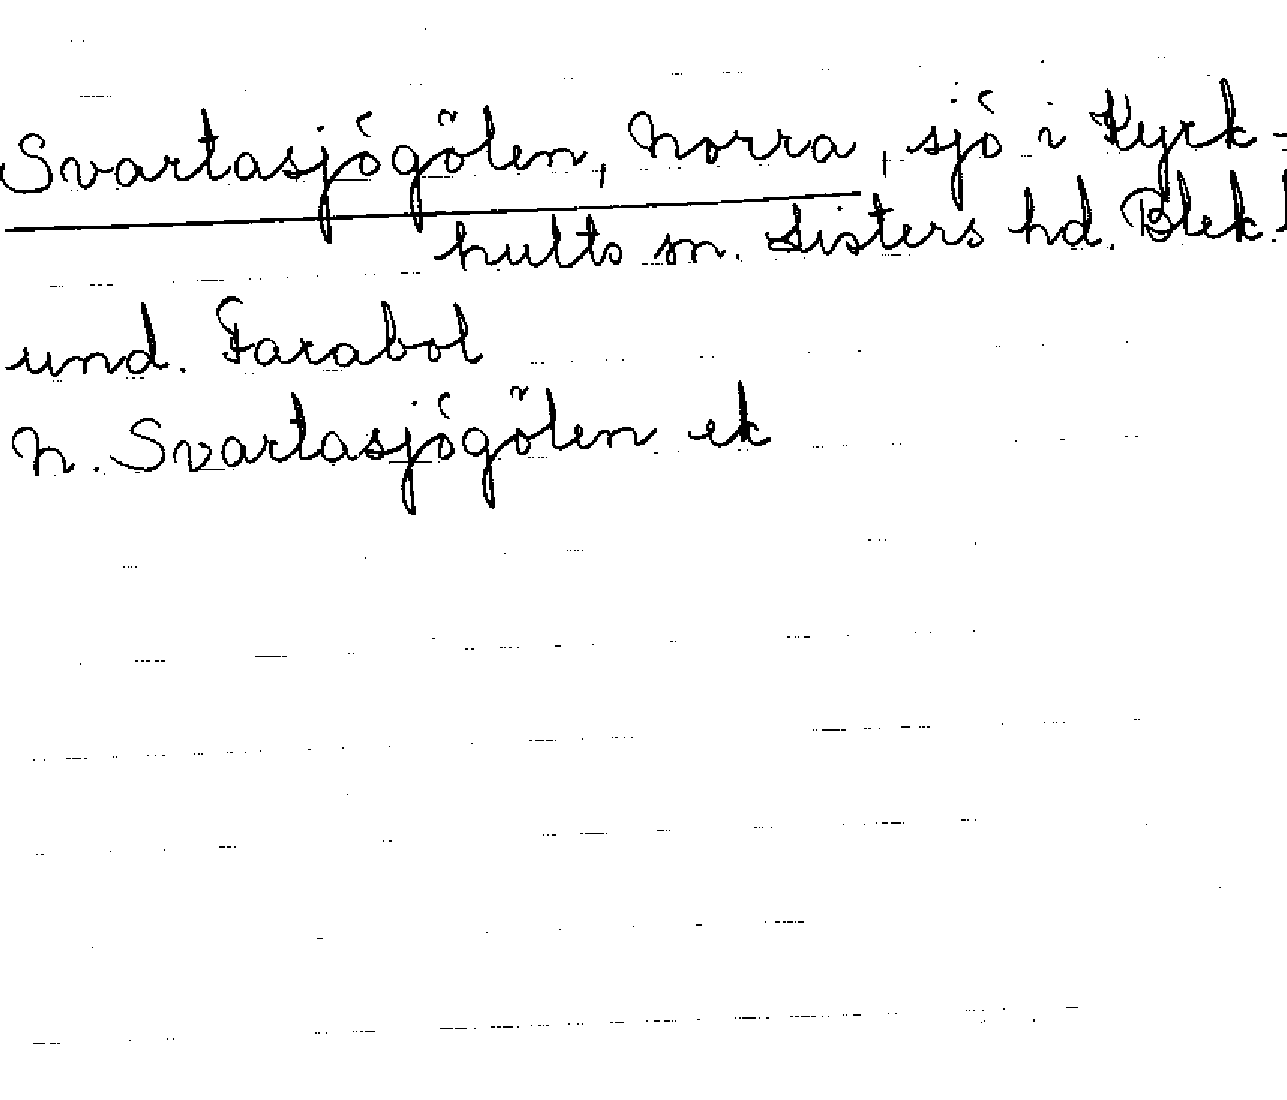 Svartasjögölen, Norra, sjö i Kyrk-
hults sn. Listers hd. Blek.
und. Farabol
N. Svartasjögölen ek